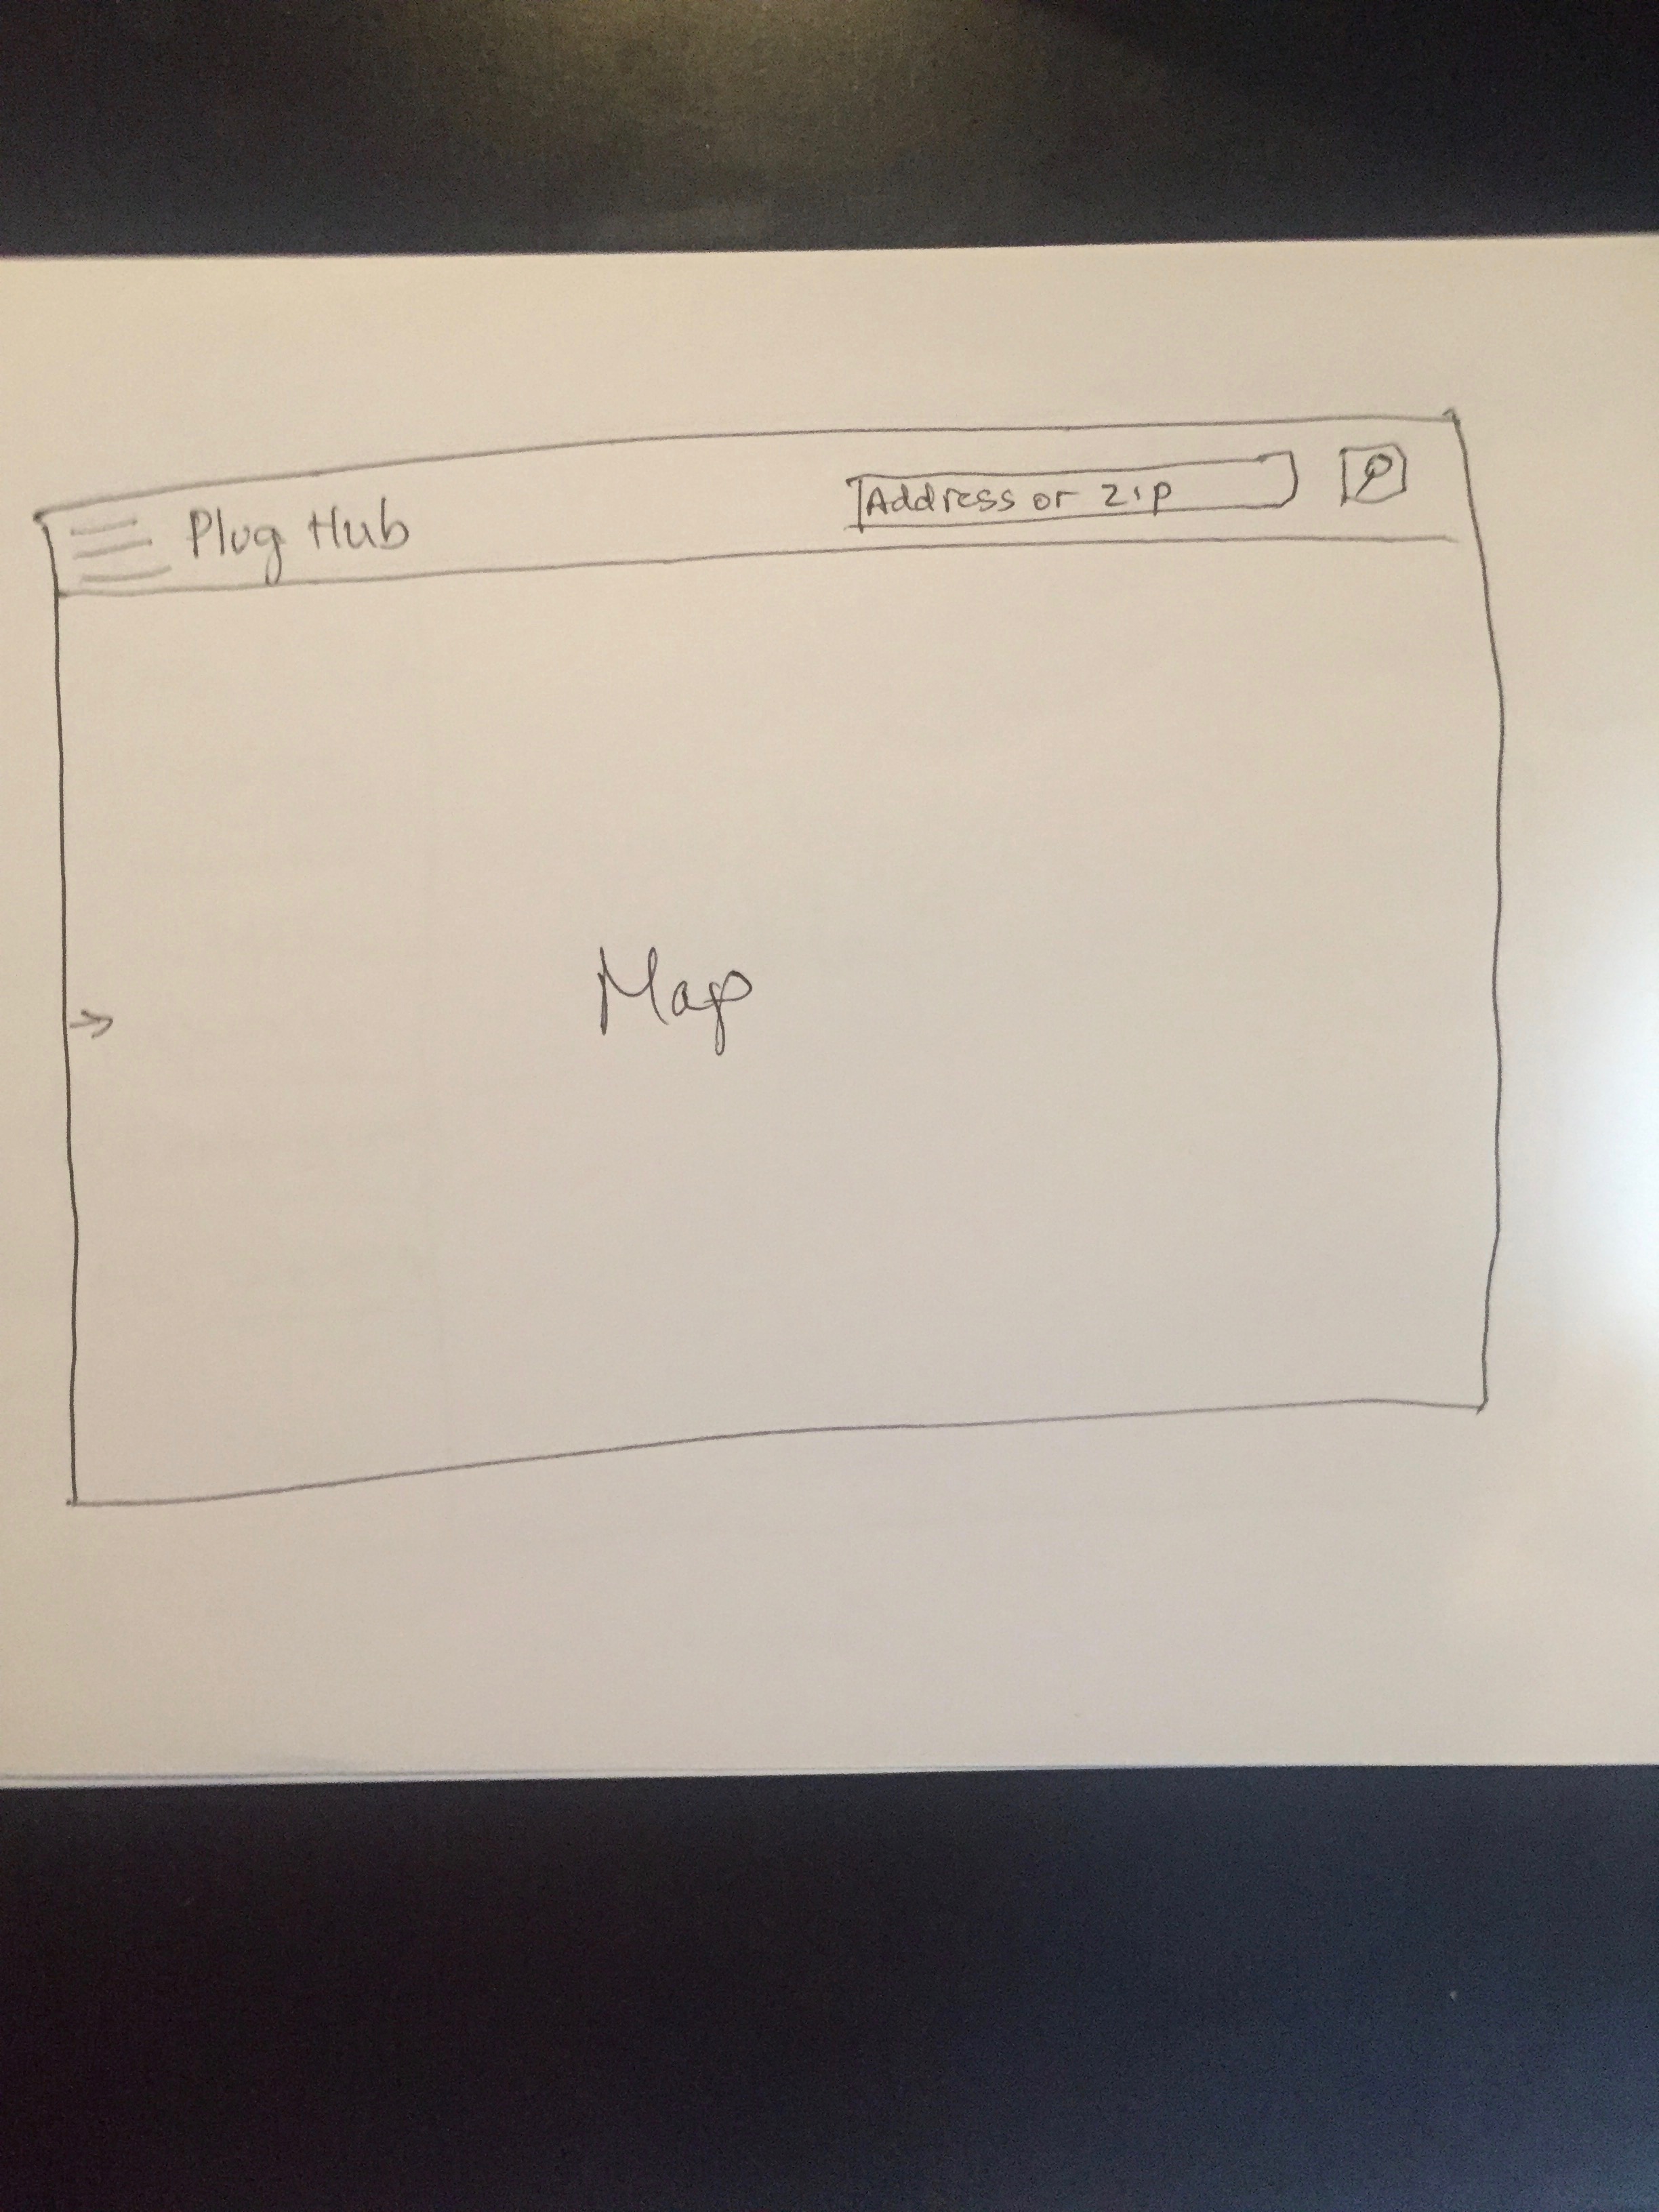 Plug Hub
Address or Zip
Map